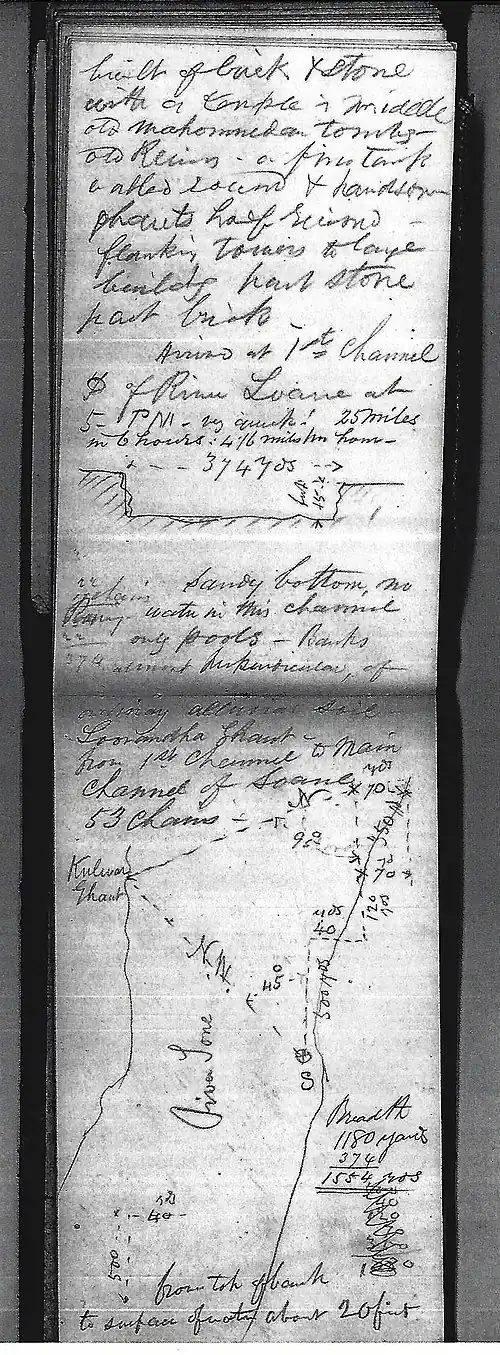 built of brick & stone
with a temple in middle
old Mahommedan tombs
old Ruins - a fine tank
walled round & handsome
ghauts half round -
flanking towers to large
buildgs part stone
part brick
Arrived at 1st Channel
of River Soane at
5 - PM - vy quick! 25 miles
in 6 hours: 4 1/6 miles hour -
374 yds
15 feet
Sandy bottom, no
water in this channel
only pools - Banks
374 almost perpendicular, of
ordinary alluvial soil
Ghaut -
from 1st Channel to Main
Channel of Soane
53 Chains =
N
yds
70
90°
450 yds
Ghaut
yds
70
120 yds
yds
40
N.W.
45°
500 yds
River Sone
S
Breadth
1180 yards
374
1554 yds
yds
40
500
from top of bank
to surface of water about 20 feet